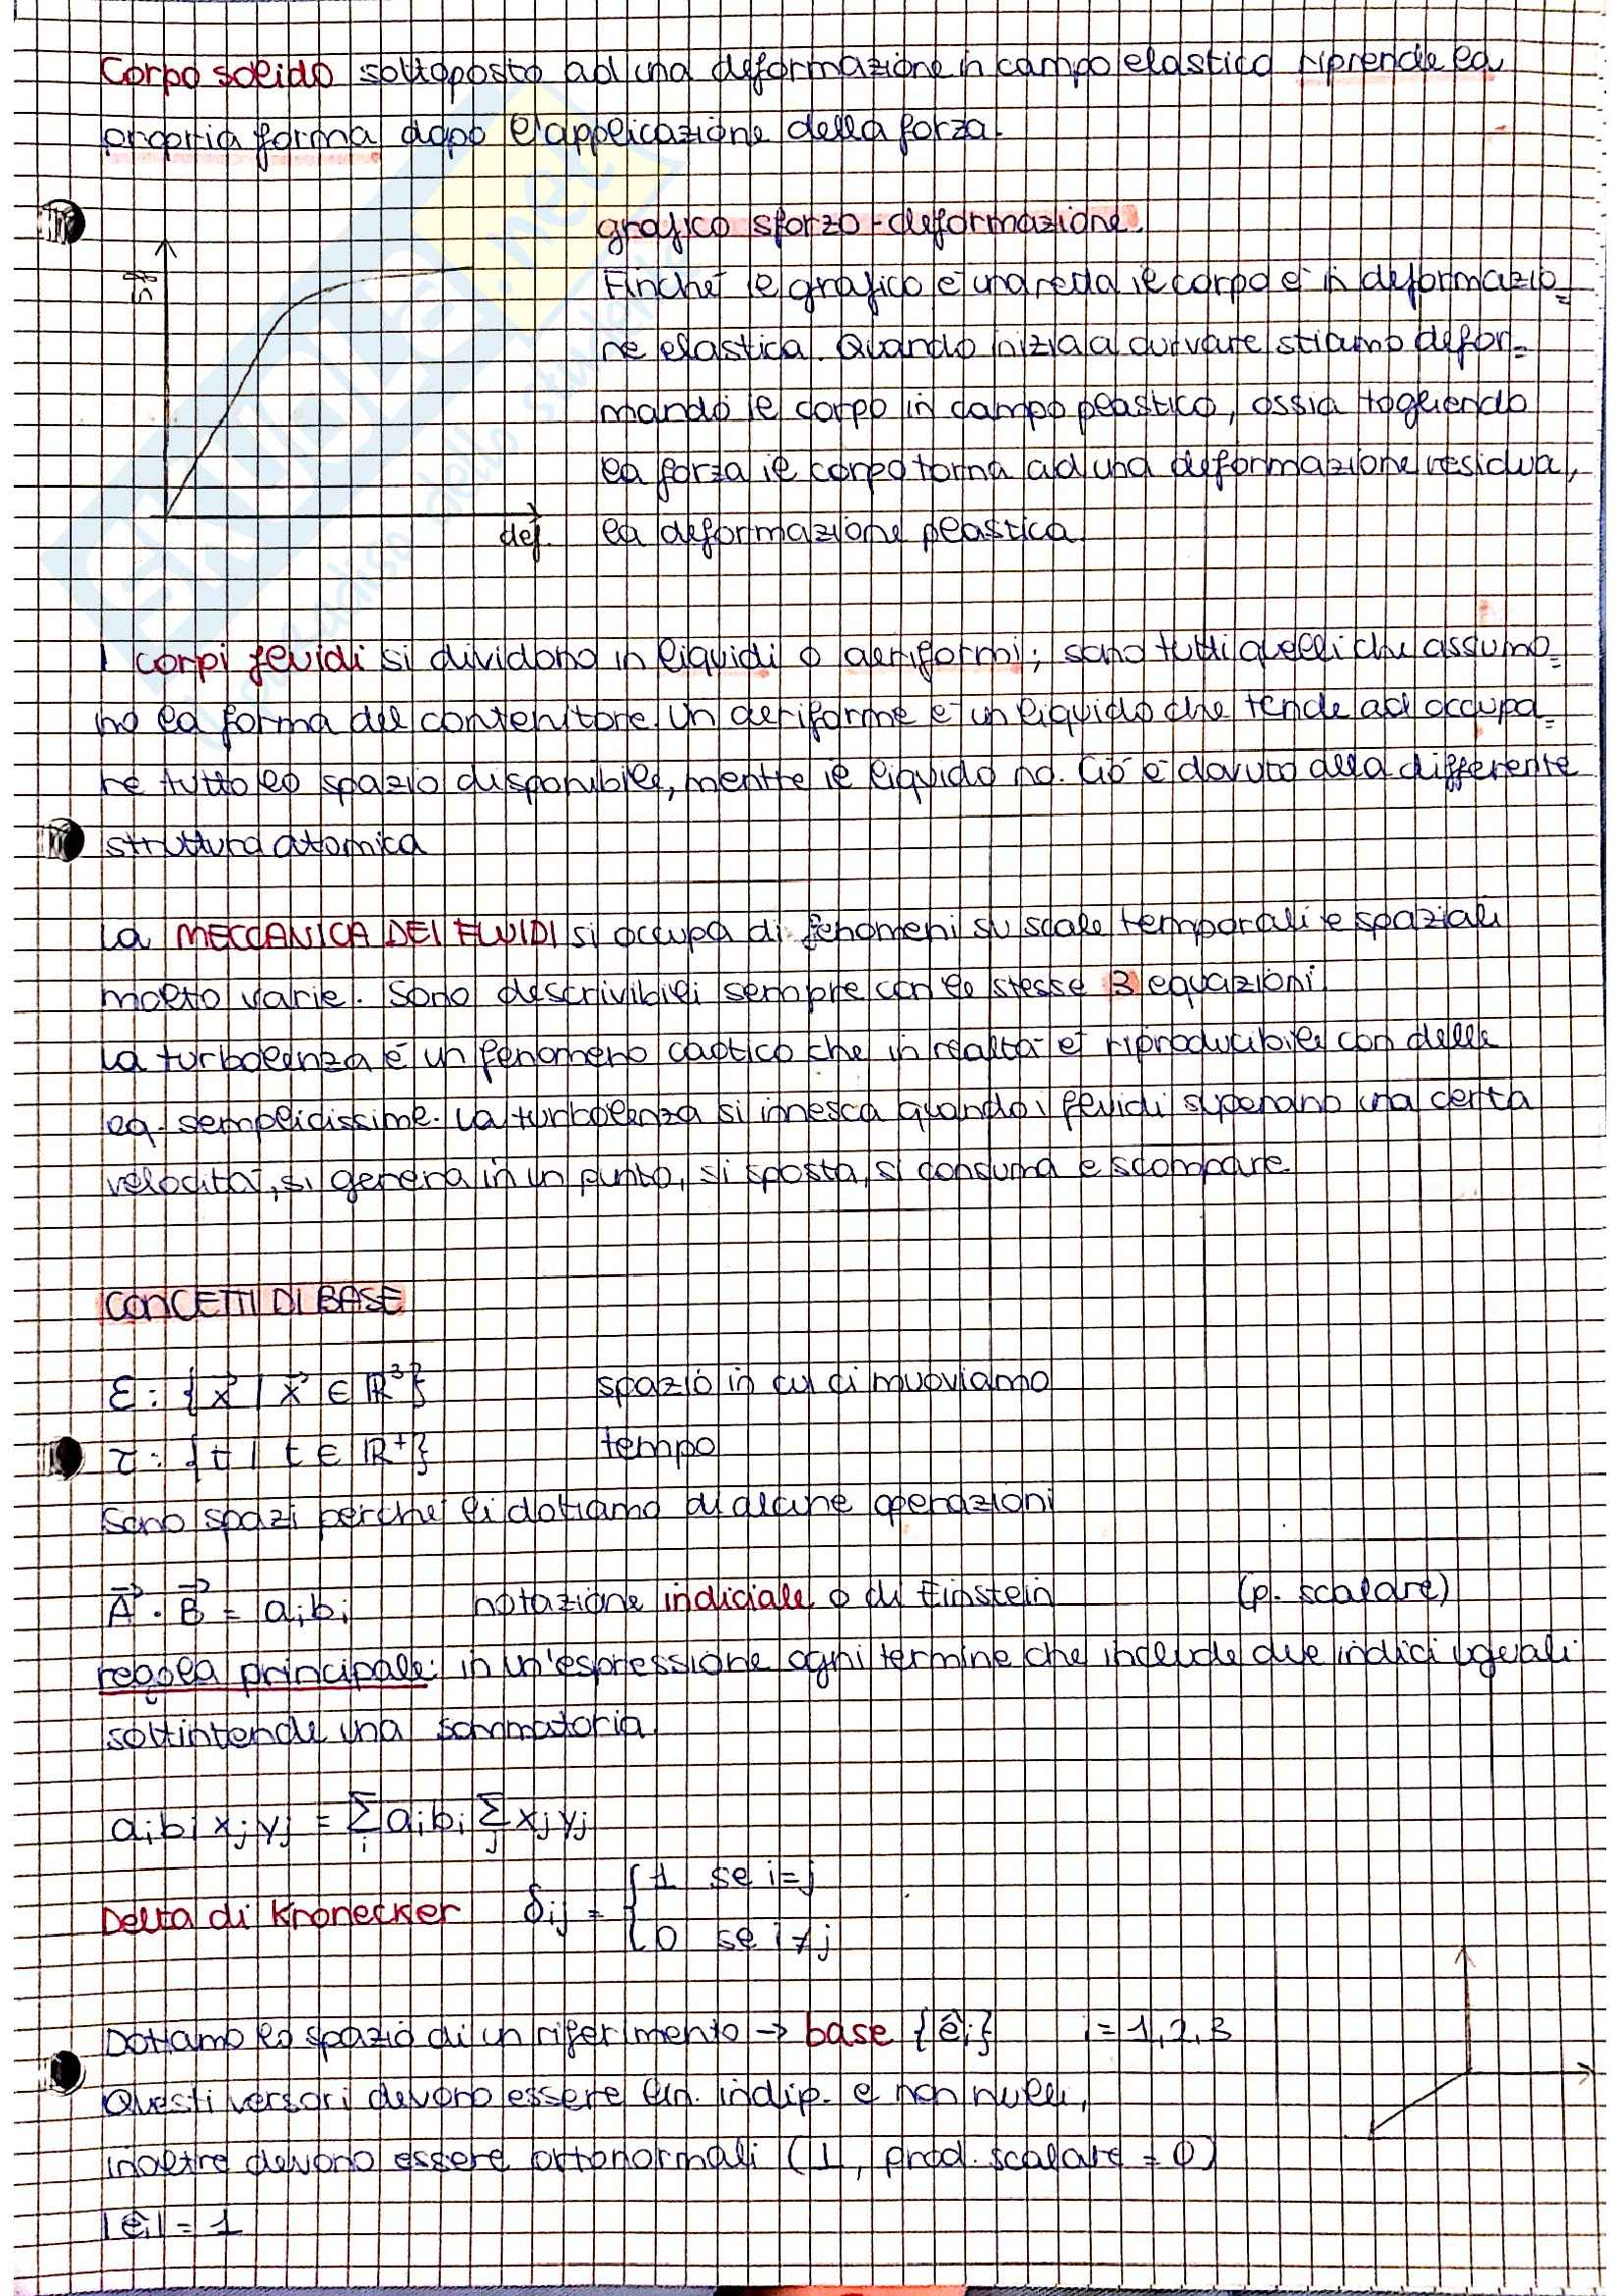 Corpo solido sottoposto ad una deformazione in campo elastico riprende la
propria forma dopo l'applicazione della forza.
grafico sforzo-deformazione.
Finché il grafico è una retta il corpo è in deformazio=
ne elastica. Quando inizia a curvare stiamo defor=
mando il corpo in campo plastico, ossia togliendo
la forza il corpo torna ad una deformazione residua,
def. la deformazione plastica
I corpi fluidi si dividono in liquidi o aeriformi; sono tutti quelli che assumo=
no la forma del contenitore. Un aeriforme è un liquido che tende ad occupa=
re tutto lo spazio disponibile, mentre il liquido no. Ciò è dovuto alla differente
struttura atomica
La MECCANICA DEI FLUIDI si occupa di fenomeni su scale temporali e spaziali
molto varie. Sono descrivibili sempre con le stesse 3 equazioni
La turbolenza è un fenomeno caotico che in realtà è riproducibile con delle
eq. semplicissime. La turbolenza si innesca quando i fluidi superano una certa
velocità, si genera in un punto, si sposta, si consuma e scompare
CONCETTI DI BASE
ℰ: {x⃗ | x⃗ ∈ ℝ³} spazio in cui ci muoviamo
τ: {t | t ∈ ℝ⁺} tempo
Sono spazi perché li dotiamo di alcune operazioni
A⃗ · B⃗ = aᵢbᵢ notazione indiciale o di Einstein (p. scalare)
regola principale: in un'espressione ogni termine che include due indici uguali
sottintende una sommatoria
aᵢbᵢxⱼyⱼ = Σᵢ aᵢbᵢ Σⱼ xⱼyⱼ
Delta di Kronecker δij = { 1 se i=j
0 se i≠j
Dotiamo lo spazio di un riferimento → base {êᵢ} i = 1,2,3
Questi versori devono essere lin. indip. e non nulli,
inoltre devono essere ortonormali (⊥, prod. scalare = 0)
|êᵢ| = 1